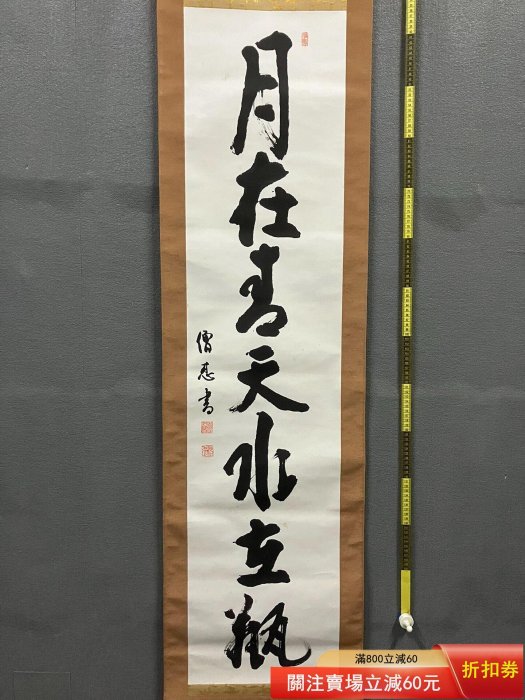 月在青天水在瓶
僧書
滿800立減60
關注賣場立減60元
折扣券